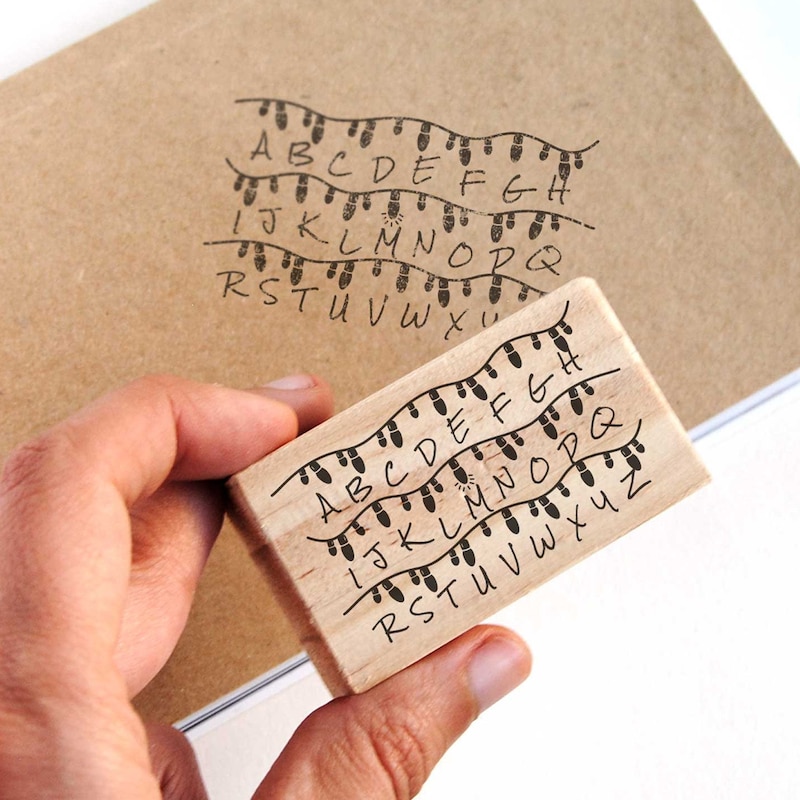 A B C D E F G H
I J K L M N O P Q
R S T U V W X Y
A B C D E F G H
I J K L M N O P Q
R S T U V W X Y Z